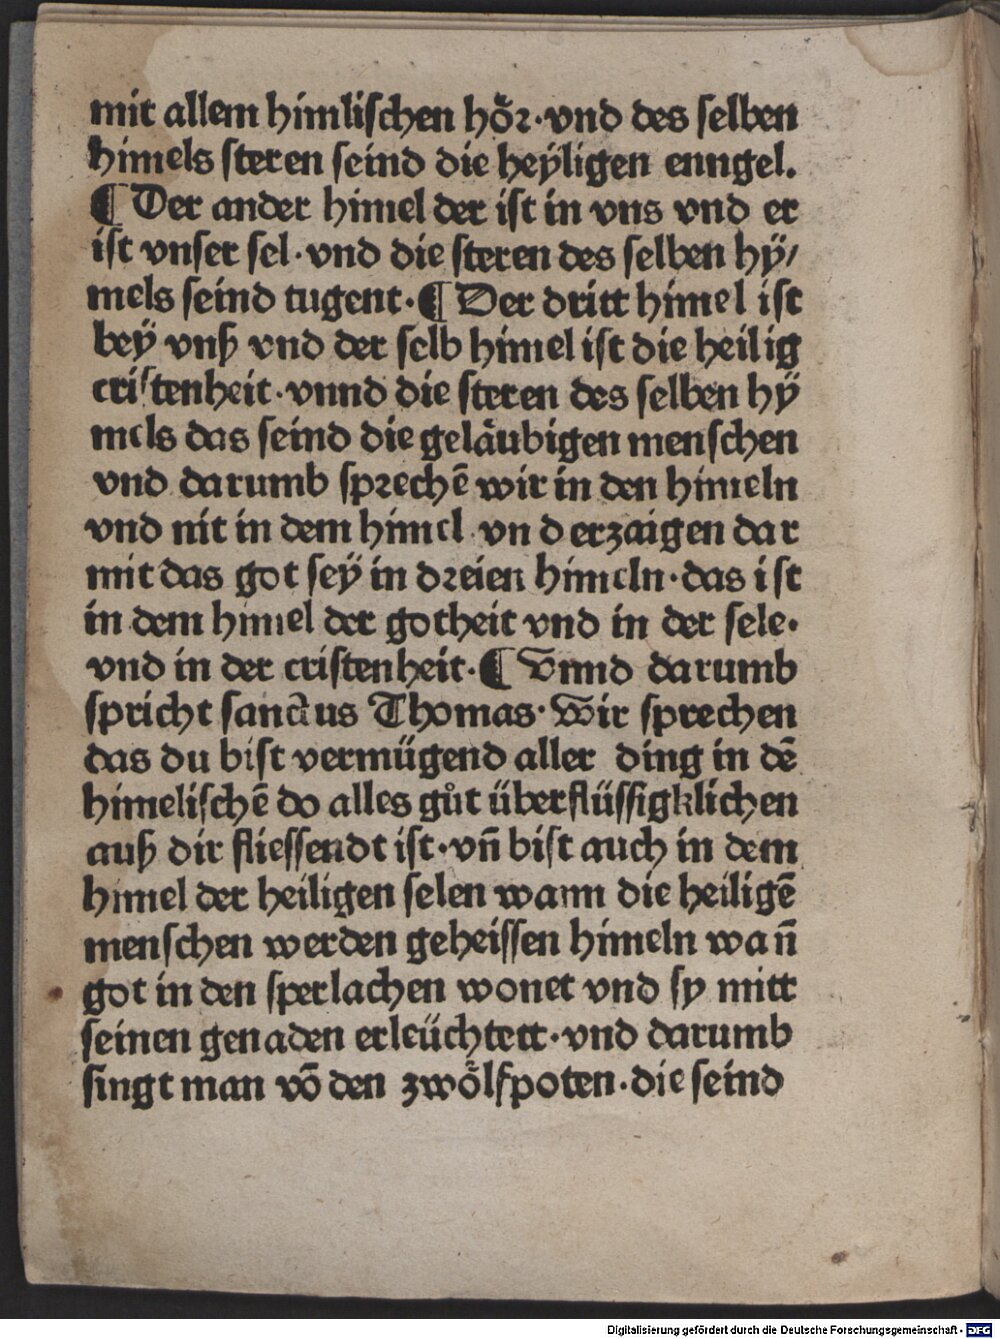 mit allem himlischen hoͤꝛ·vnd des selben
himels steren seind die heÿligen enngel.
¶ Der ander himel der ist in vns vnd er
ist vnser sel·vnd die steren des selben hÿ/
mels seind tugent·¶ Der dritt himel ist
beÿ vnß vnd der selb himel ist die heilig
cristenheit·vnnd die steren des selben hÿ
mels das seind die gelaͤubigen menschen
vnd darumb spꝛechē wir in den himeln
vnd nit in dem himel vnd erzaigen dar
mit das got seÿ in dꝛeien himeln·das ist
in dem himel der gotheit vnd in der sele·
vnd in der cristenheit·¶ Vnnd darumb
spricht sanctus Thomas·Wir sprechen
das du bist vermügend aller ding in dē
himelischē do alles guͦt überflüssigklichen
auß dir fliessendt ist·vn̄ bist auch in dem
himel der heiligen selen wann die heiligē
menschen werden geheissen himeln wan̄
got in den sperlachen wonet vnd sy mitt
seinen genaden erleüchtett·vnd darumb
singt man vō den zwoͤlfpoten·die seind
Digitalisierung gefördert durch die Deutsche Forschungsgemeinschaft · DFG